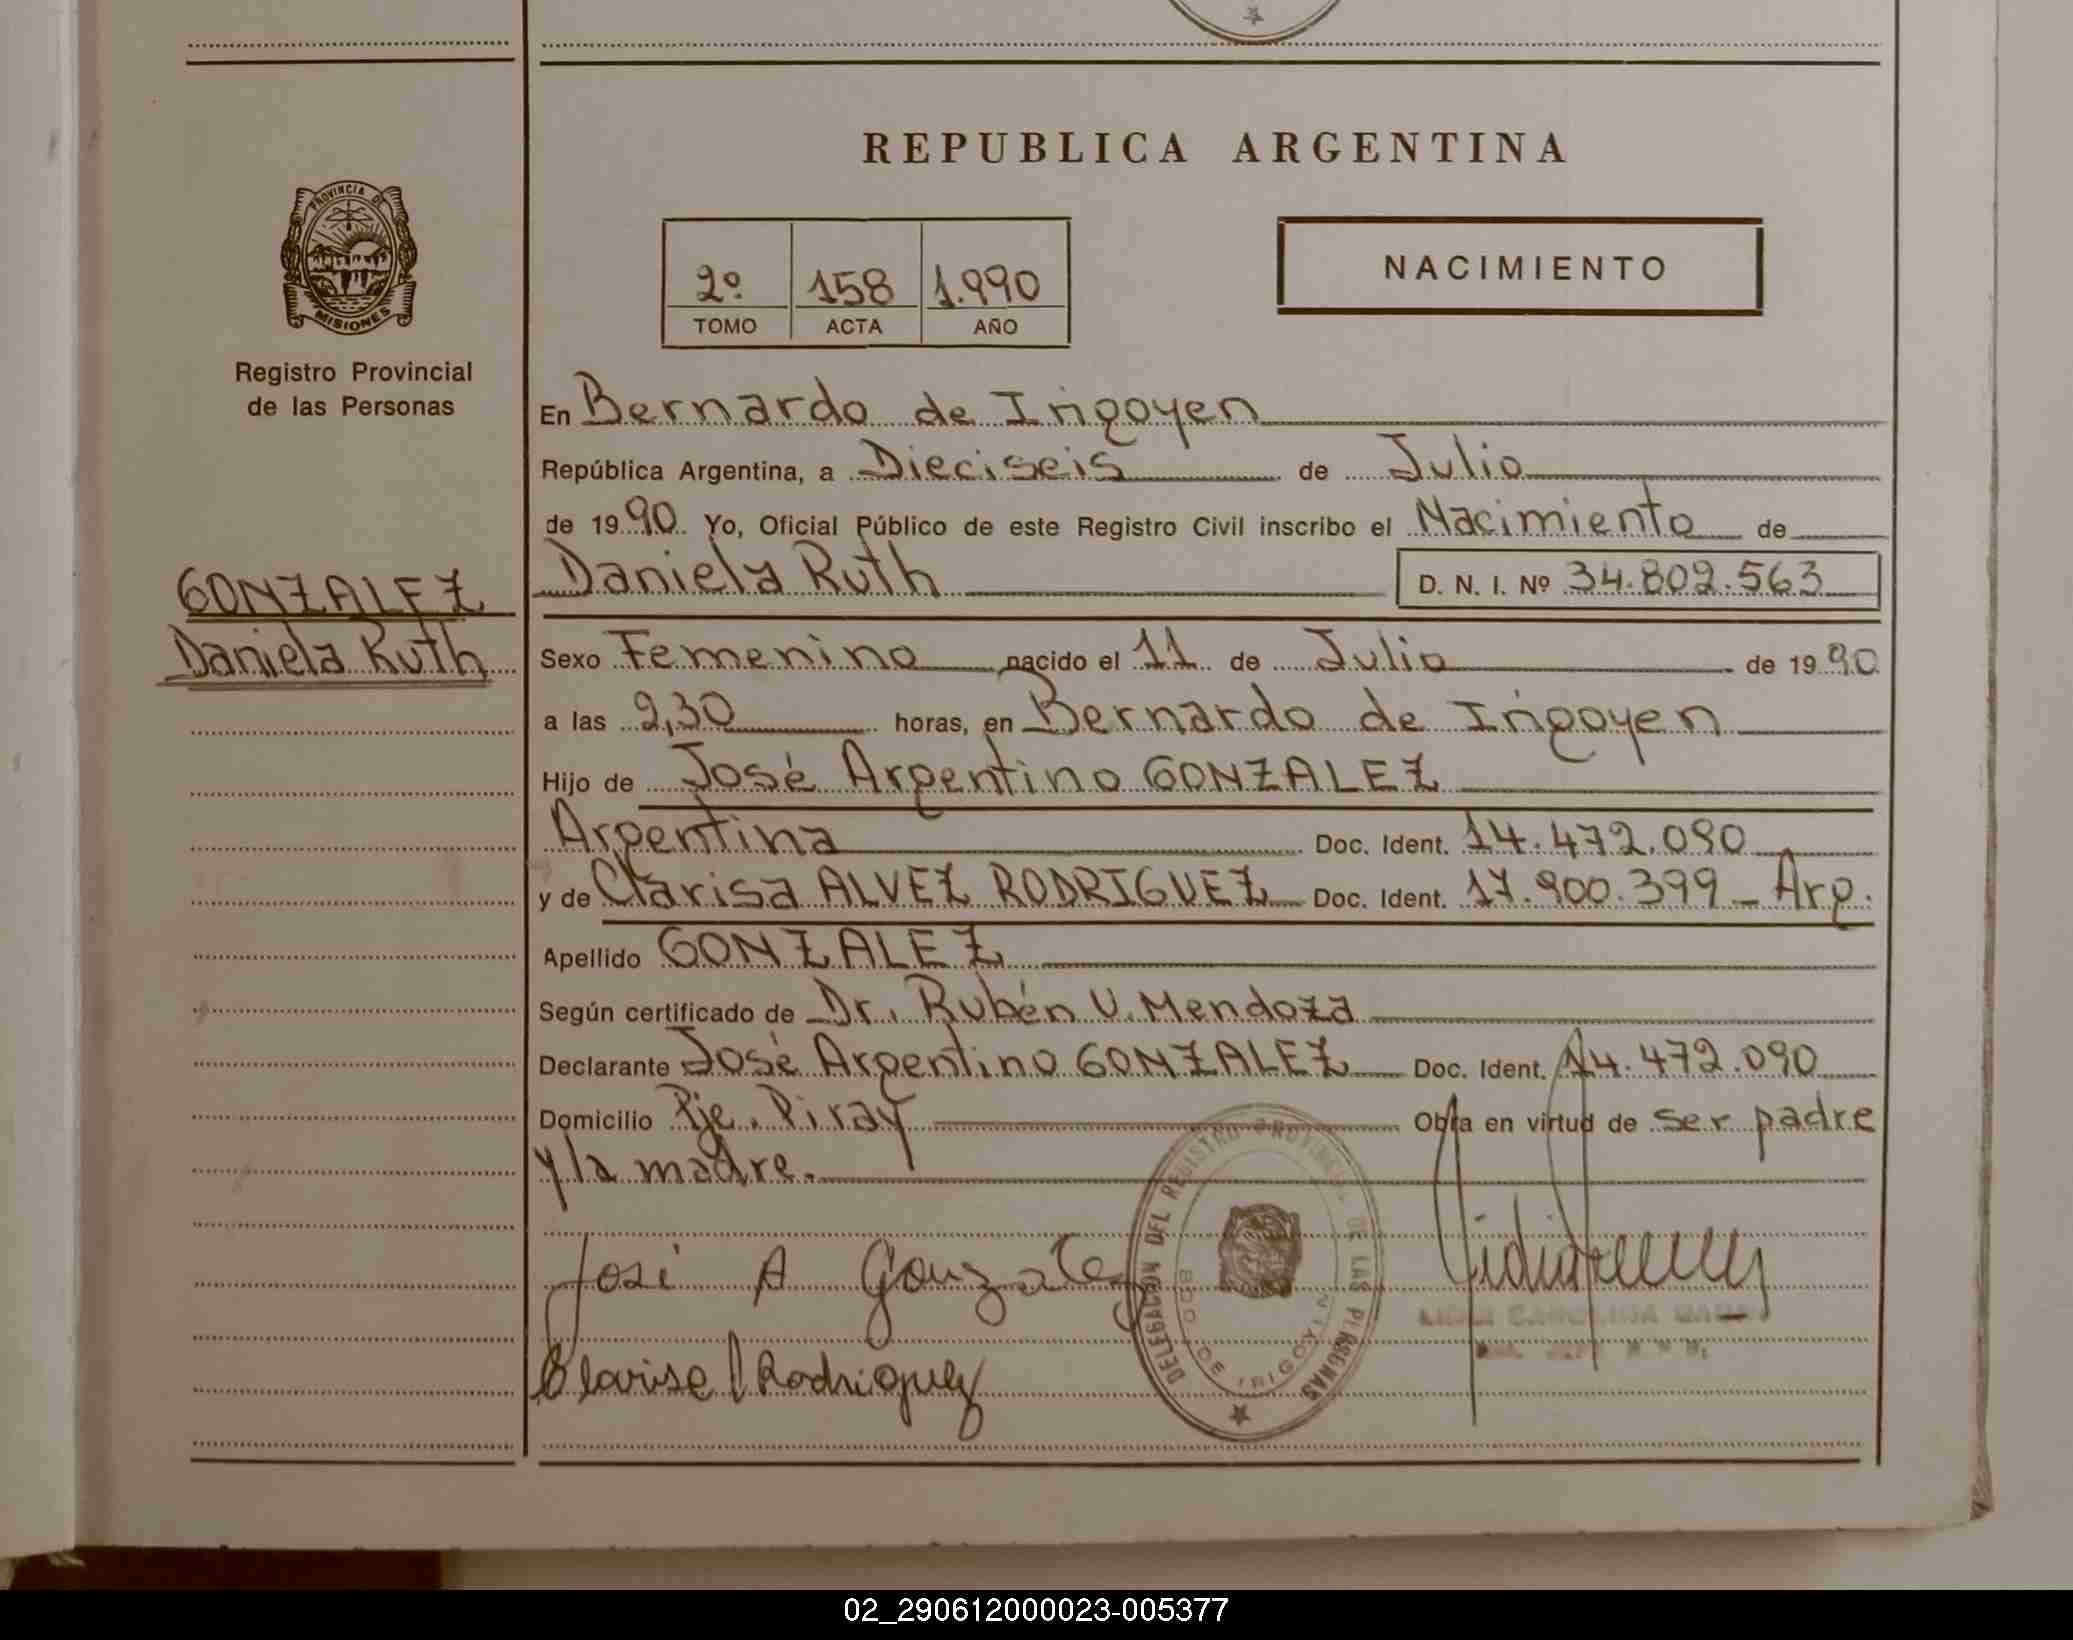 REPUBLICA ARGENTINA
PROVINCIA DE
MISIONES
Registro Provincial
de las Personas
2º 158 1.990
TOMO ACTA AÑO
NACIMIENTO
En Bernardo de Irigoyen
República Argentina, a Dieciseis de Julio
de 1990 Yo, Oficial Público de este Registro Civil inscribo el Nacimiento de
Daniela Ruth D. N. I. Nº 34.802.563
GONZALEZ
Daniela Ruth
Sexo Femenino nacido el 11 de Julio de 1990
a las 2,30 horas, en Bernardo de Irigoyen
Hijo de José Argentino GONZALEZ
Argentina Doc. Ident. 14.472.090
y de Clarisa ALVEZ RODRIGUEZ Doc. Ident. 17.900.399 - Arg.
Apellido GONZALEZ
Según certificado de Dr. Rubén V. Mendoza
Declarante José Argentino GONZALEZ Doc. Ident. 14.472.090
Domicilio Pje. Piray Obra en virtud de ser padre
y la madre.
José A Gonzalez
DELEGACION DEL REGISTRO PROVINCIAL DE LAS PERSONAS
BDO DE IRIGOYEN
CAROLINA
Clarise Rodriguez
02_290612000023-005377